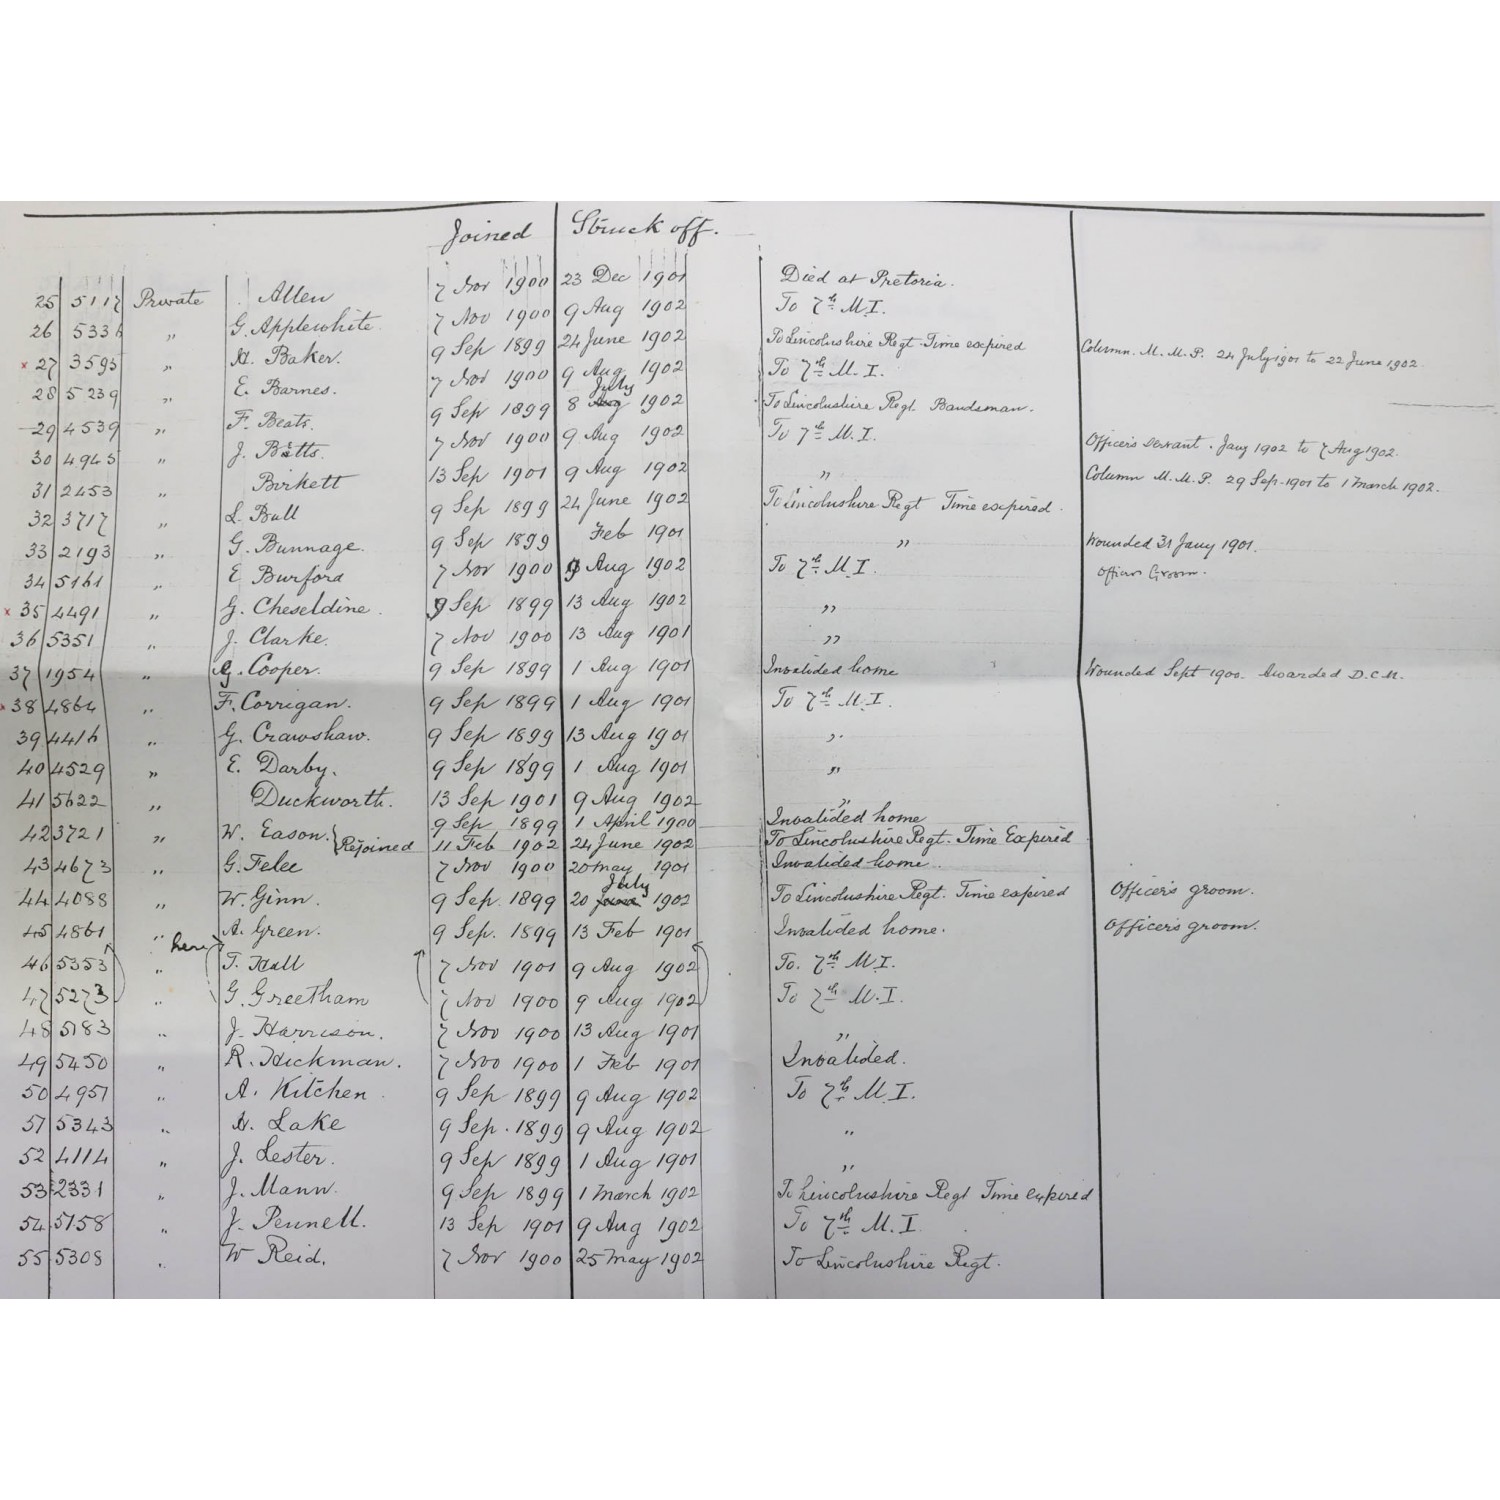 Joined Struck off.
25 5117 Private Allen 7 Nov 1900 23 Dec 1901 Died at Pretoria.
26 5336 " G. Applewhite. 7 Nov 1900 9 Aug 1902 To 7th M.I.
x 27 3595 " H. Baker. 9 Sep 1899 24 June 1902 To Lincolnshire Regt. Time expired Column. M.M.P. 24 July 1901 to 22 June 1902.
28 5239 " E. Barnes. 7 Nov 1900 9 Aug 1902 To 7th M.I.
29 4539 " F. Beats. 9 Sep 1899 8 July 1902 To Lincolnshire Regt. Bandsman.
30 4945 " J. Betts. 7 Nov 1900 9 Aug 1902 To 7th M.I. Officer's servant. Jany 1902 to 7 Aug 1902.
31 2453 " Birkett 13 Sep 1901 9 Aug 1902 " Column M.M.P. 29 Sep. 1901 to 1 March 1902.
32 3717 " L. Bull 9 Sep 1899 24 June 1902 To Lincolnshire Regt Time expired.
33 2193 " G. Bunnage. 9 Sep 1899 Feb 1901 " Wounded 31 Jany 1901.
34 5161 " E Burford 7 Nov 1900 9 Aug 1902 To 7th M.I. Officers Groom.
x 35 4491 " G. Cheseldine. 9 Sep 1899 13 Aug 1902 "
36 5351 " J. Clarke. 7 Nov 1900 13 Aug 1901 "
37 1954 " G. Cooper. 9 Sep 1899 1 Aug 1901 Invalided home Wounded Sept 1900. Awarded D.C.M.
x 38 4864 " F. Corrigan. 9 Sep 1899 1 Aug 1901 To 7th M.I.
39 4416 " G. Crawshaw. 9 Sep 1899 13 Aug 1901 "
40 4529 " E. Darby. 9 Sep 1899 1 Aug 1901 "
41 5622 " Duckworth. 13 Sep 1901 9 Aug 1902 "
42 3721 " W. Eason. 9 Sep 1899 1 April 1900 Invalided home
Rejoined 11 Feb 1902 24 June 1902 To Lincolnshire Regt. Time Expired
43 4673 " G. Felee 7 Nov 1900 20 May 1901 Invalided home.
44 4088 " W. Ginn. 9 Sep. 1899 20 July 1902 To Lincolnshire Regt. Time expired Officer's groom.
45 4861 " A. Green. 9 Sep. 1899 13 Feb 1901 Invalided home. Officer's groom.
here
46 5353 " T. Hall 7 Nov 1901 9 Aug 1902 To. 7th M.I.
47 5273 " G. Greetham 7 Nov 1900 9 Aug 1902 To 7th M.I.
48 5183 " J. Harrison. 7 Nov 1900 13 Aug 1901 "
49 5450 " R. Hickman. 7 Nov 1900 1 Feb 1901 Invalided.
50 4957 " A. Kitchen. 9 Sep 1899 9 Aug 1902 To 7th M.I.
51 5343 " H. Lake 9 Sep. 1899 9 Aug 1902 "
52 4114 " J. Lester. 9 Sep 1899 1 Aug 1901 "
53 2331 " J. Mann. 9 Sep 1899 1 March 1902 To Lincolnshire Regt Time expired
54 5158 " J. Pennell. 13 Sep 1901 9 Aug 1902 To 7th M.I.
55 5308 " W Reid. 7 Nov 1900 25 May 1902 To Lincolnshire Regt.